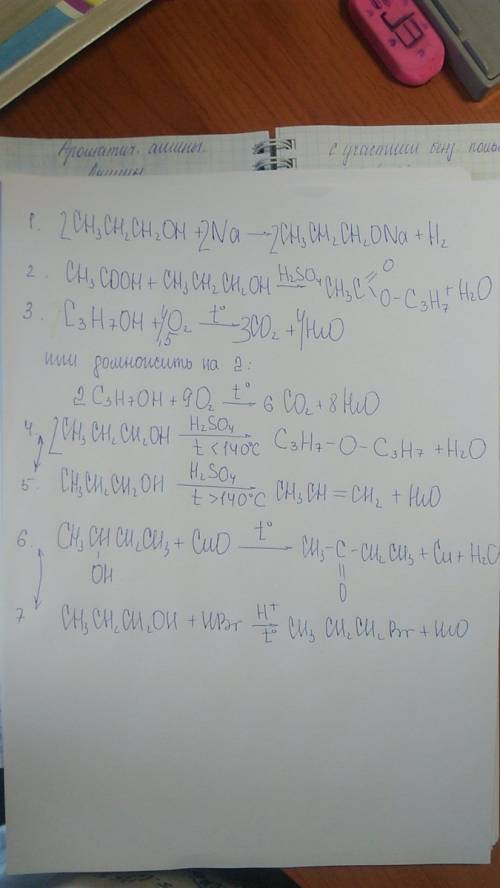 Ароматич. амины.
с участии бенз.
1. 2CH₃CH₂CH₂OH + 2Na → 2CH₃CH₂CH₂ONa + H₂
2. CH₃COOH + CH₃CH₂CH₂OH H₂SO₄ → CH₃C O O–C₃H₇ + H₂O
3. C₃H₇OH + 4,5O₂ t° → 3CO₂ + 4H₂O
или домножить на 2:
2C₃H₇OH + 9O₂ t° → 6CO₂ + 8H₂O
4. 2CH₃CH₂CH₂OH H₂SO₄ t<140°C → C₃H₇–O–C₃H₇ + H₂O
5. CH₃CH₂CH₂OH H₂SO₄ t>140°C → CH₃CH=CH₂ + H₂O
6. CH₃CHCH₂CH₃ + CuO t° → CH₃–C–CH₂CH₃ + Cu + H₂O
OH O
7 CH₃CH₂CH₂OH + HBr H⁺ t° → CH₃CH₂CH₂Br + H₂O